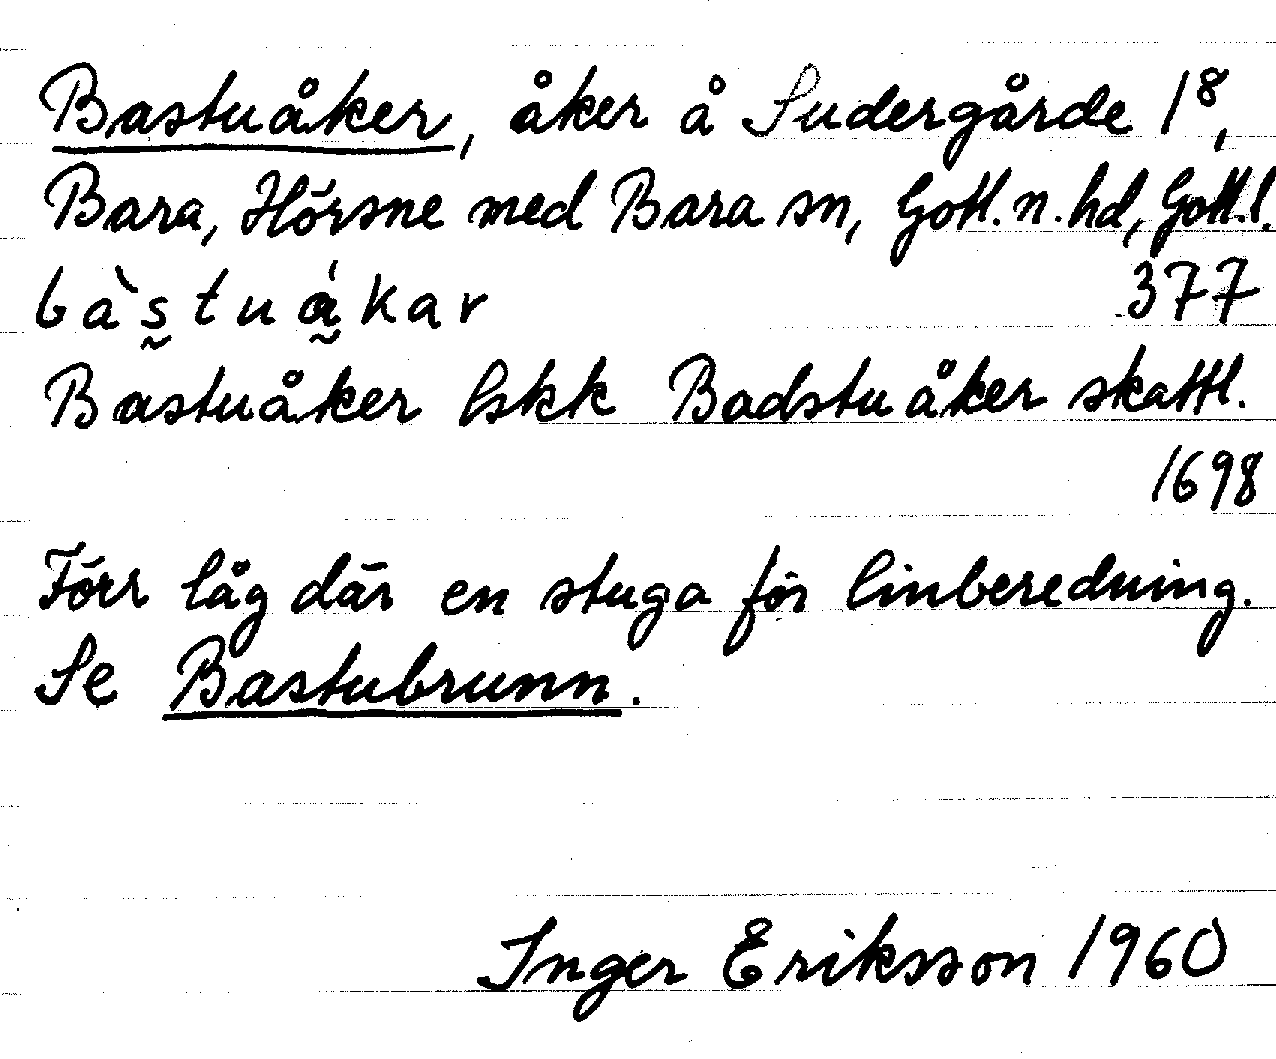 Bastuåker, åker å Sudergårde 1⁸,
Bara, Hörsne med Bara sn, Gotl. n. hd, Gotl. l.
bàs̰tuá̰kar 377
Bastuåker lskk Badstuåker skattl.
1698
Förr låg där en stuga för linberedning.
Se Bastubrunn.
Inger Eriksson 1960